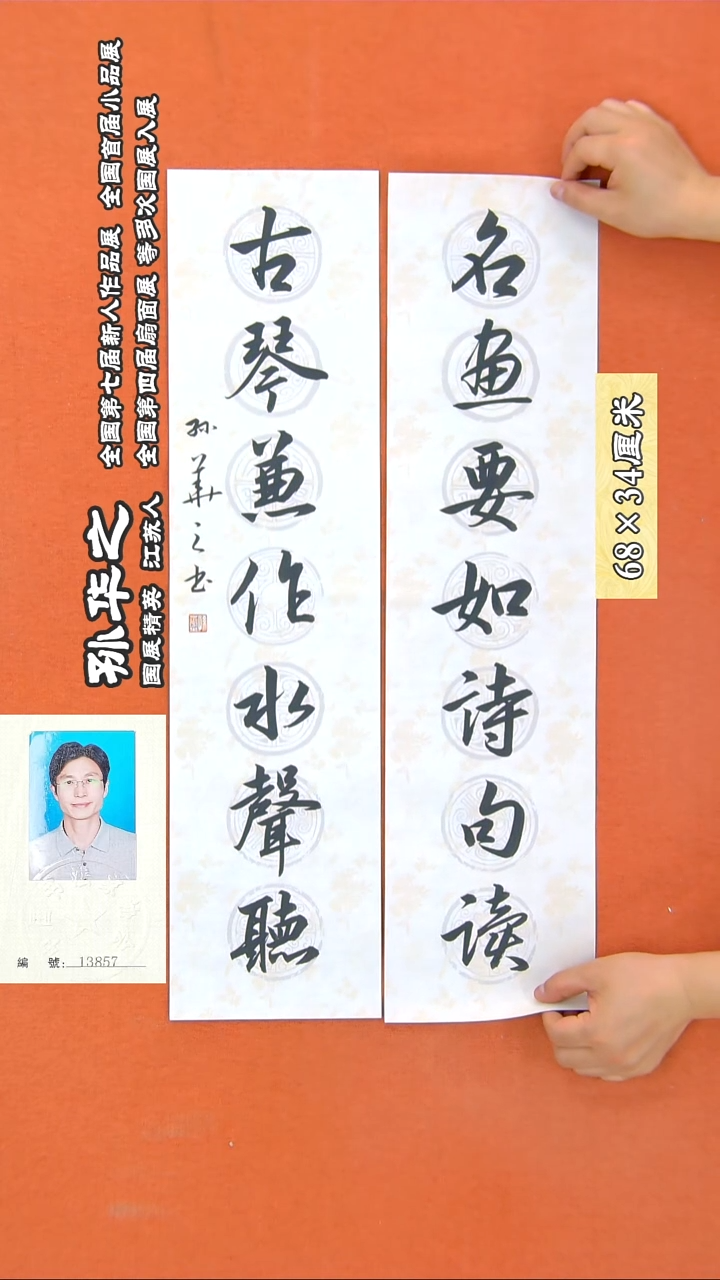 名画要如诗句读
古琴兼作水聲聽
孙華之书
孙华之
国展精英 江苏人
全国第七届新人作品展 全国首届小品展
全国第四届扇面展 等多次国展入展
68×34厘米
編 號: 13857